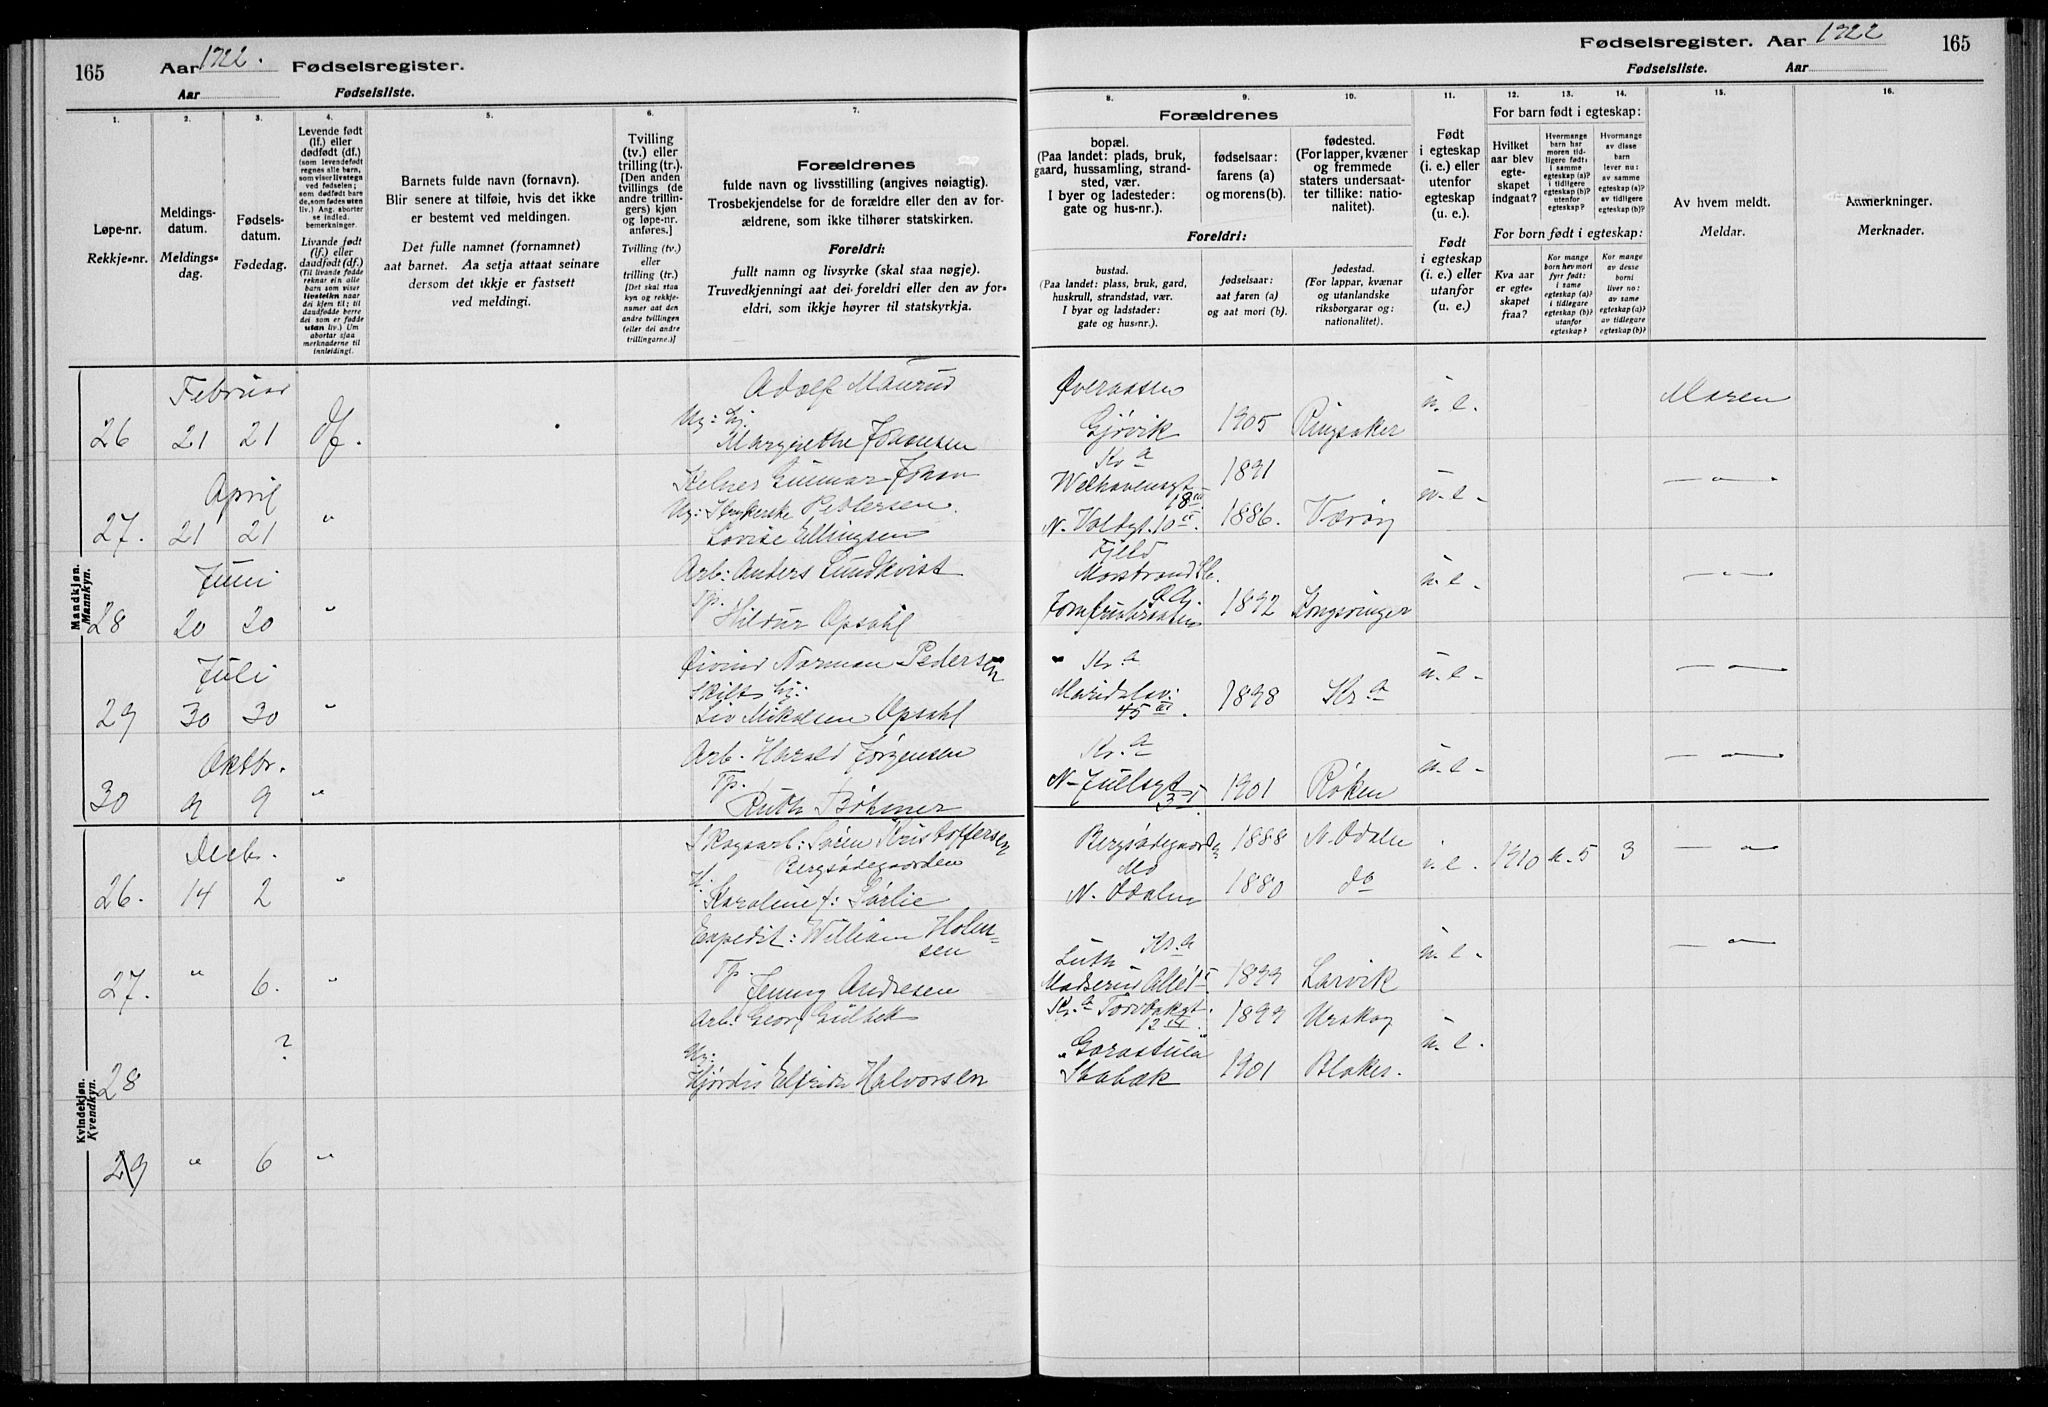 165 Aar 1922. Fødselsregister.
Aar Fødselsliste.
Fødselsregister. Aar 1922 165
Fødselsliste. Aar
1.
Løpe-nr.
Rekkje-nr.
2.
Meldings-
datum.
Meldings-
dag.
3.
Fødsels-
datum.
Fødedag.
4.
Levende født
(lf.) eller
dødfødt (df.)
(som levendefødt
regnes alle barn,
som viser livstegn
ved fødselen;
som dødfødt bare
de, som fødes uten
liv.) Ang. aborter
se indled.
bemerkninger.
Livande født
(lf.) eller
daudfødt (df.)
(Til livande fødde
reknar ein alle
barn som viser
livsteikn naar
dei kjem til; til
daudfødde berre
dei som er fødde
utan liv.) Um
abortar sjaa
merknaderne til
innleidingi.
5.
Barnets fulde navn (fornavn).
Blir senere at tilføie, hvis det ikke
er bestemt ved meldingen.
Det fulle namnet (fornamnet)
aat barnet. Aa setja attaat seinare
dersom det ikkje er fastsett
ved meldingi.
6.
Tvilling
(tv.) eller
trilling (tr.).
[Den anden
tvillings (de
andre trillin-
gers) kjøn
og løpe-nr.
anføres.]
Tvilling (tv.)
eller
trilling (tr.)
[Det skal staa
kyn og rekkje-
numer aat den
andre tvillingen
(eller dei andre
trillingarne.)]
7.
Forældrenes
fulde navn og livsstilling (angives nøiagtig).
Trosbekjendelse for de forældre eller den av for-
ældrene, som ikke tilhører statskirken.
Foreldri:
fullt namn og livsyrke (skal staa nøgje).
Truvedkjenningi aat dei foreldri eller den av for-
eldri, som ikkje høyrer til statskyrkja.
Forældrenes
8.
bopæl.
(Paa landet: plads, bruk,
gaard, hussamling, strand-
sted, vær.
I byer og ladesteder:
gate og hus-nr.).
9.
fødselsaar:
farens (a)
og morens (b).
10.
fødested.
(For lapper, kvæner
og fremmede
staters undersaat-
ter tillike: natio-
nalitet).
Foreldri:
bustad.
(Paa landet: plass, bruk, gard,
huskrull, strandstad, vær.
I byar og ladstader:
gate og hus-nr.).
fødselsaar:
aat faren (a)
og aat mori (b).
fødestad.
(For lappar, kvænar
og utanlandske
riksborgarar og:
nationalitet).
11.
Født
i egteskap
(i. e.) eller
utenfor
egteskap
(u. e.).
Født
i egteskap
(i. e.) eller
utanfor
(u. e.)
12. 13. 14.
For barn født i egteskap:
Hvilket
aar blev
egte-
skapet
indgaat?
Hvormange
barn har
moren tid-
ligere født:
i samme
egteskap (a)?
i tidligere
egteskap (b)?
utenfor
egteskap?
Hvormange
av disse
barn
lever nu:
av samme
egteskap (a)?
av tidligere
egteskap (b)?
For born født i egteskap:
Kva aar
er egte-
skapet
fraa?
Kor mange
born hev mori
fyrr født:
i same
egteskap (a)?
i tidlegare
egteskap (b)?
utanfor
egteskap?
Kor mange
av desse
borni
liver no:
av same
egteskap (a)?
av tidlegare
egteskap (b)?
15.
Av hvem meldt.
Meldar.
16.
Anmerkninger.
Merknader.
Mandkjøn.
Mannkyn.
Februar Adolf Maurud Øveraasen
26 21 21 df. Margrethe Johansen Gjøvik 1905 Ringsaker u. e. Moren
April Kelner Gunnar Johan Kr.a 1891
Pettersen Welhavensgt 18
27. 21 21 " Lovise Ellingsen 10 1886. Værøy u. e. — " —
Juni Arb: Anders Lundkvist
28 20 20 " Tp. Hildur Opsahl 1892 Kongsvinger u. e. — " —
Juli Øivind Norman Pedersen Kr.a
29 30 30 " Liv Mikalsen Opsahl 45 III. 1898 Kr.a u. e. — " —
Oktbr. Arb. Harald Jørgensen Kr.a
30 9 9 " Tp. Ruth Bøhmer 1901 Røken u. e. — " —
Kvindekjøn.
Kvendkyn.
Decbr. Skogsarb: Søren Kristoffersen 1888 N. Odalen
Bergsødegaarden Mo
26. 14 2 " Karoline f: Sørlie N. Odalen 1880 do 1910 5 3 — " —
Expedit: William Holm-
sen Kr.a
27. " 6. " Tp. Jenny Andresen 1899 Larvik u. e. — " —
Arb: Georg Gulbek Kr.a 12 1899 Urskog
28 ? Hjørdis Elfride Halvorsen Stabæk 1901 Blaker. u. e.
29 " 6 "